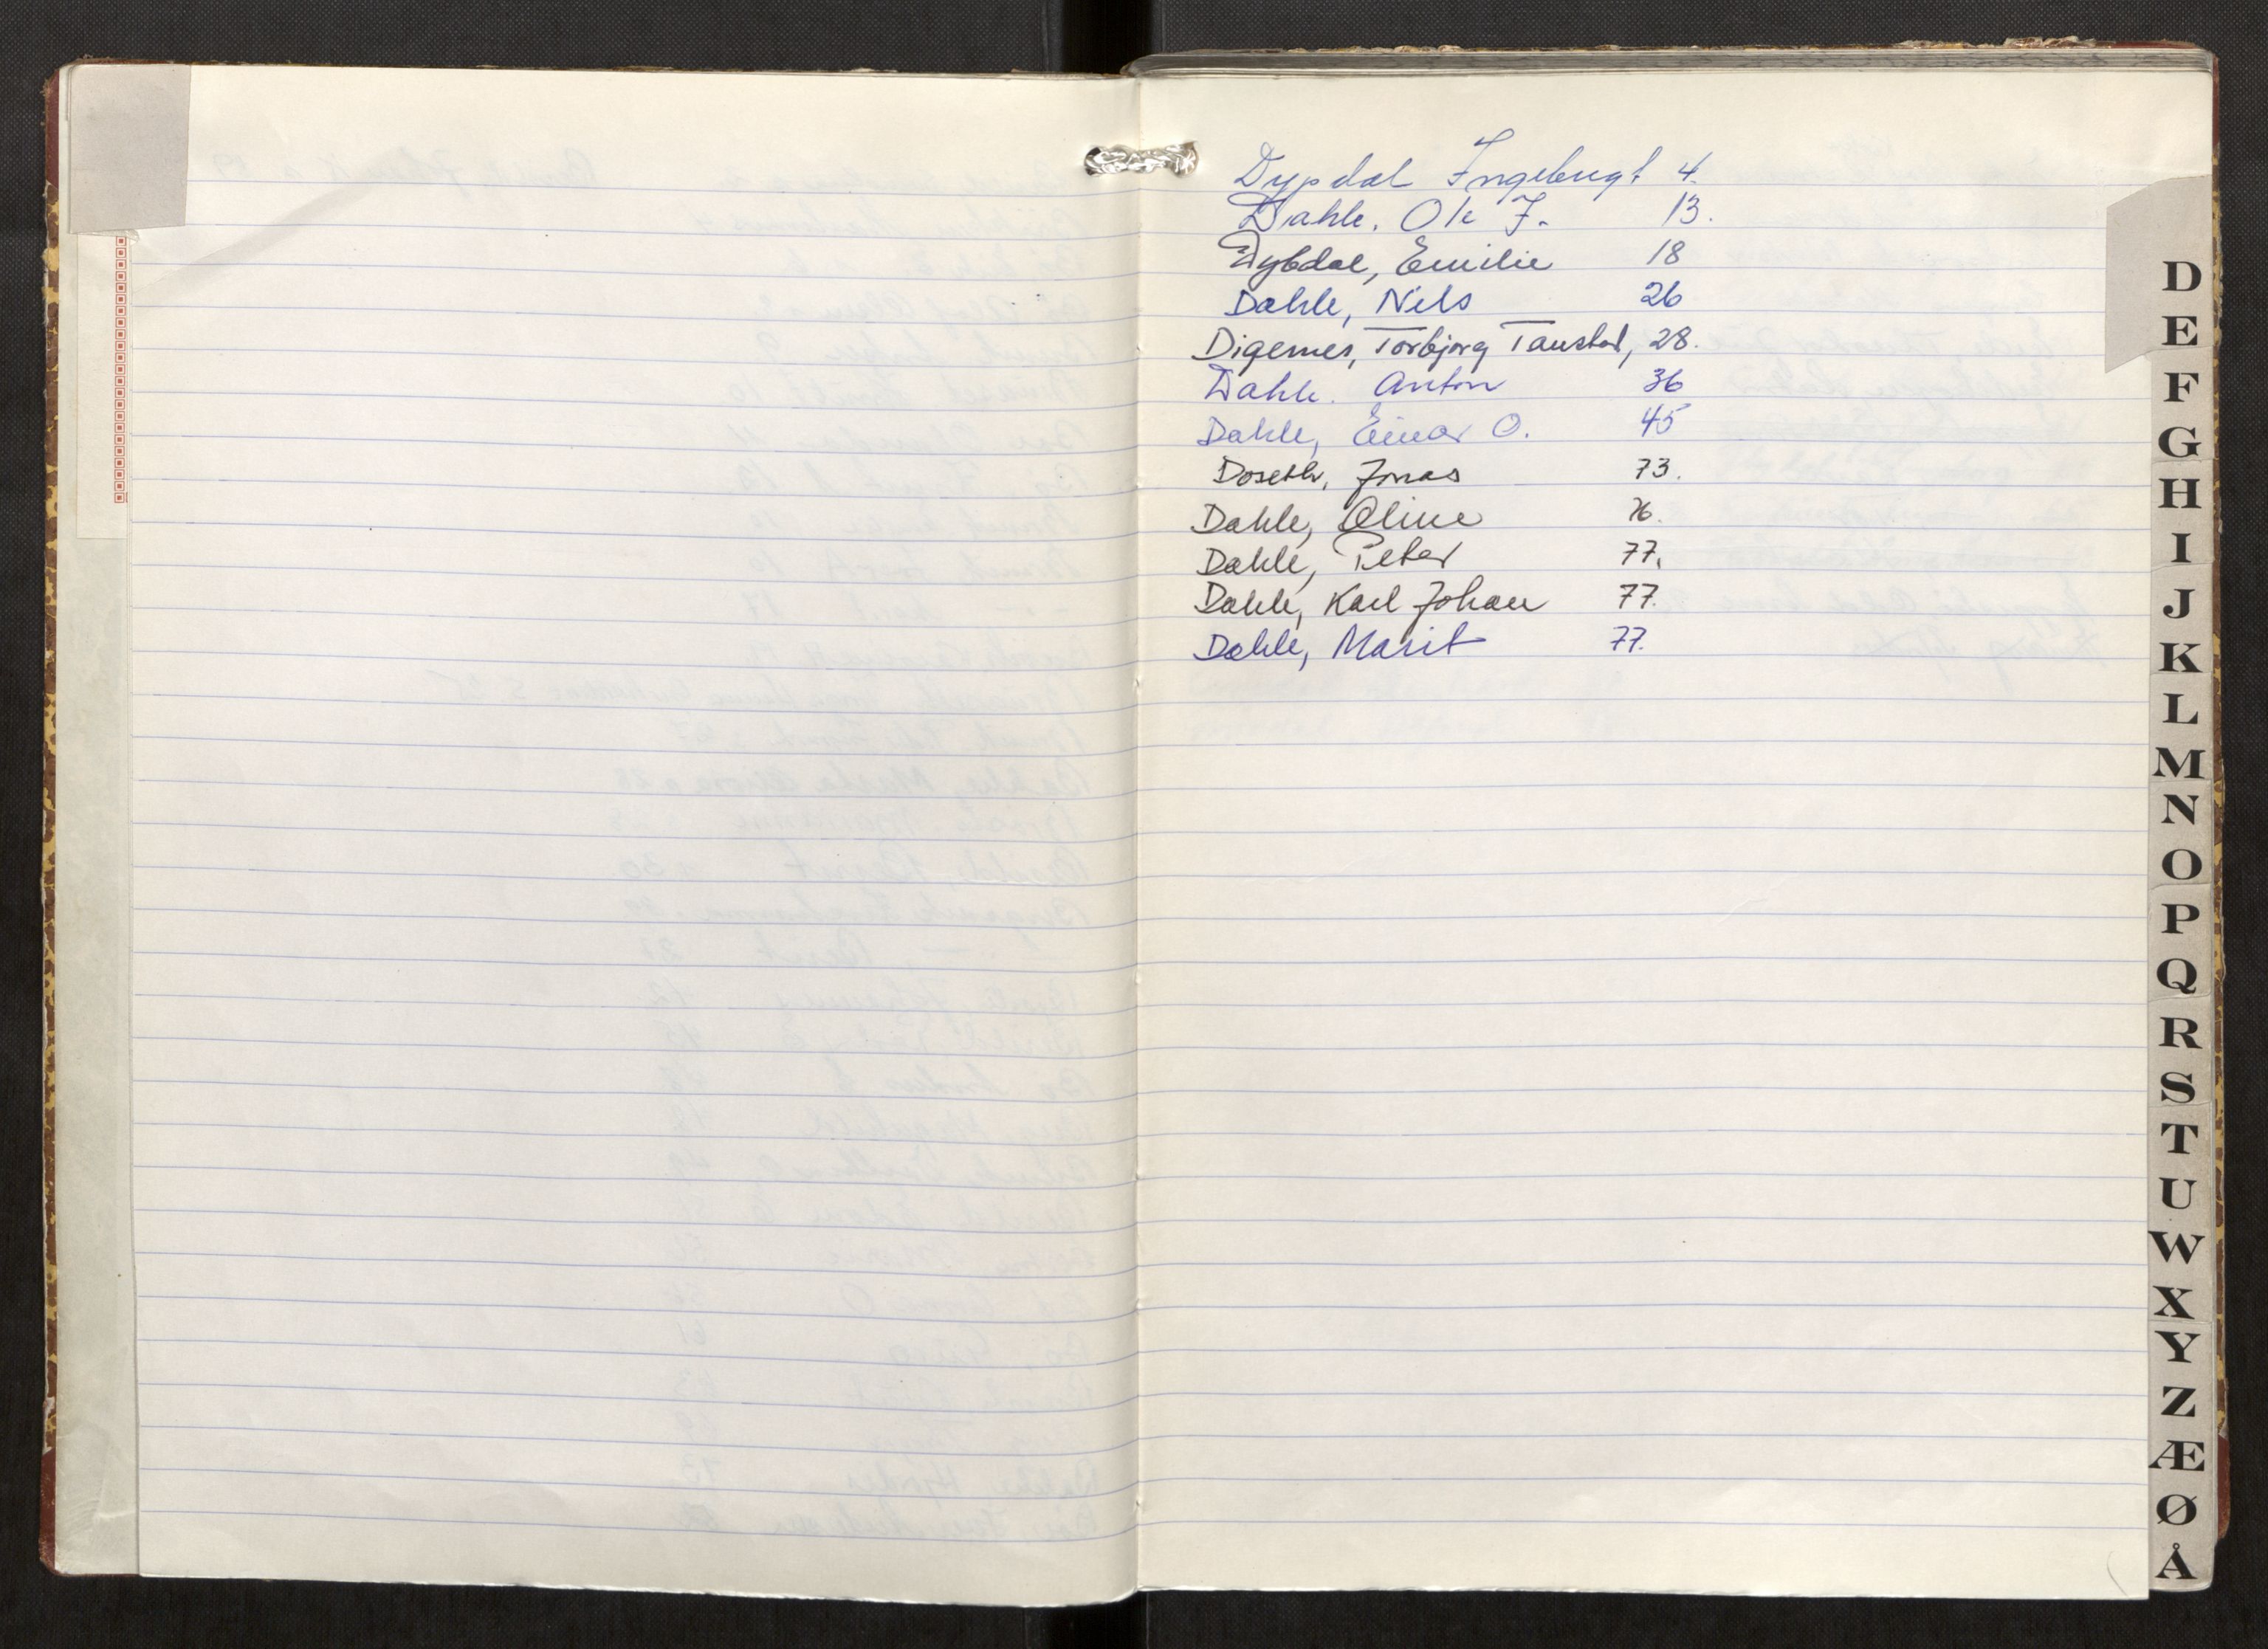 Dypdal Ingebrigt 4.
Dahle, Ole J. 13.
Dybdal, Emilie 18
Dahle, Nils 26
Digernes, Torbjørg Taustad, 28.
Dahle. Anton 36
Dahle, Einar O. 45
Doseth, Jonas 73.
Dahle, Oline 76.
Dahle, Peter 77.
Dahle, Karl Johan 77.
Dahle, Marit 77.
D
E
F
G
H
I
J
K
L
M
N
O
P
Q
R
S
T
U
W
X
Y
Z
Æ
Ø
Å